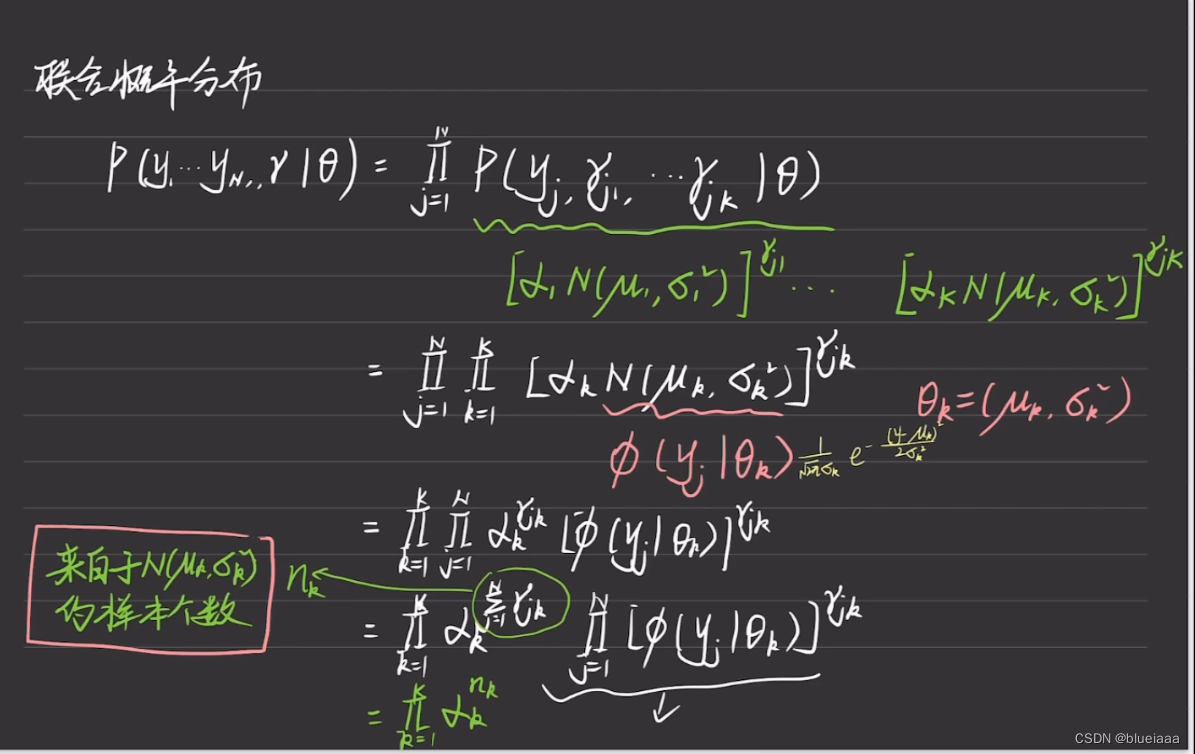 联合概率分布
P(y₁…y_N, γ|θ) = ∏_{j=1}^{N} P(y_j, γ_{j1}, …γ_{jk}|θ)
[α₁N(μ₁,σ₁²)]^{γ_{j1}} … [α_K N(μ_K, σ_K²)]^{γ_{jK}}
= ∏_{j=1}^{N} ∏_{k=1}^{K} [α_k N(μ_k, σ_k²)]^{γ_{jk}}
θ_k=(μ_k, σ_k²)
φ(y_j|θ_k) \frac{1}{\sqrt{2π}σ_k} e^{-\frac{(y-μ_k)²}{2σ_k²}}
= ∏_{k=1}^{K} ∏_{j=1}^{N} α_k^{γ_{jk}} [φ(y_j|θ_k)]^{γ_{jk}}
来自于N(μ_k,σ_k²)
的样本个数
n_k
= ∏_{k=1}^{K} α_k^{∑_{j=1}^{N} γ_{jk}} ∏_{j=1}^{N} [φ(y_j|θ_k)]^{γ_{jk}}
= ∏_{k=1}^{K} α_k^{n_k}
CSDN @blueiaaa